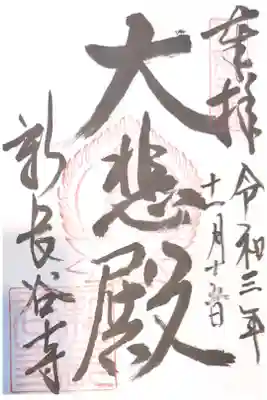 奉拝
令和三年
十一月十五日
大悲殿
新長谷寺